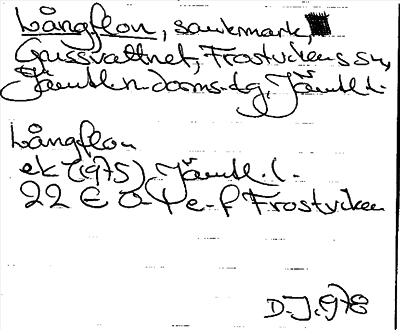 Långflon, sankmark,
Gussvattnet, Frostvikens sn,
Jämtl. n. doms. dg, Jämtl. l.
Långflon
ek 7(1975) Jämtl. l.
22 E 0-f Frostviken
D.J. 978